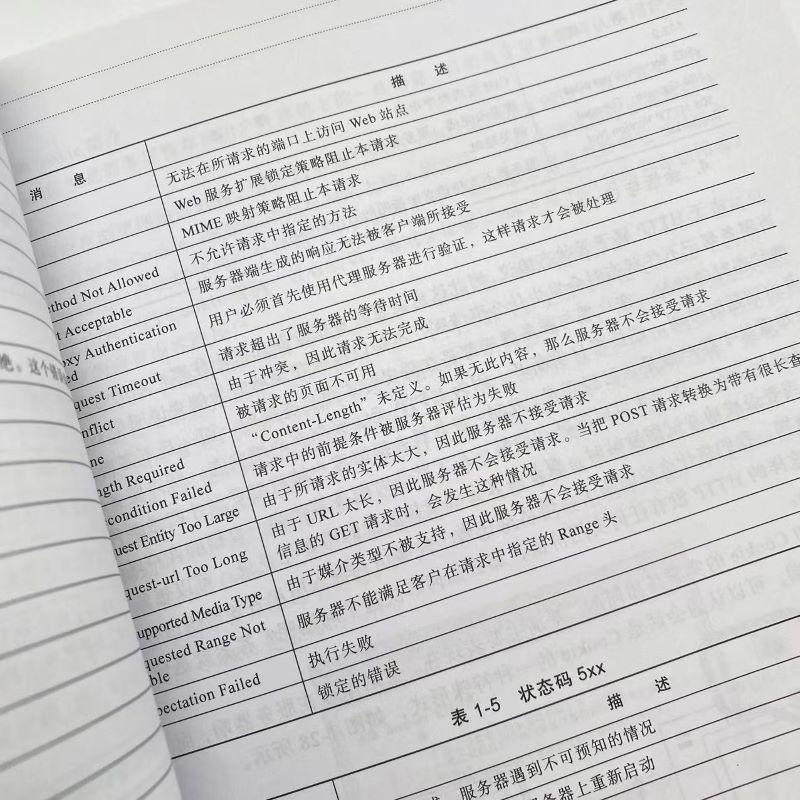 消 息 描 述
无法在所请求的端口上访问 Web 站点
Web 服务扩展锁定策略阻止本请求
MIME 映射策略阻止本请求
ethod Not Allowed 不允许请求中指定的方法
t Acceptable 服务器端生成的响应无法被客户端所接受
oxy Authentication 用户必须首先使用代理服务器进行验证，这样请求才会被处理
ed
quest Timeout 请求超出了服务器的等待时间
nflict 由于冲突，因此请求无法完成
ne 被请求的页面不可用
ngth Required “Content-Length” 未定义。如果无此内容，那么服务器不会接受请求
condition Failed 请求中的前提条件被服务器评估为失败
uest Entity Too Large 由于所请求的实体太大，因此服务器不接受请求
quest-url Too Long 由于 URL 太长，因此服务器不会接受请求。当把 POST 请求转换为带有很长查
信息的 GET 请求时，会发生这种情况
upported Media Type 由于媒介类型不被支持，因此服务器不会接受请求
quested Range Not 服务器不能满足客户在请求中指定的 Range 头
ble
pectation Failed 执行失败
锁定的错误
表 1-5 状态码 5xx
描 述
服务器遇到不可预知的情况
务器上重新启动
绝。这个错